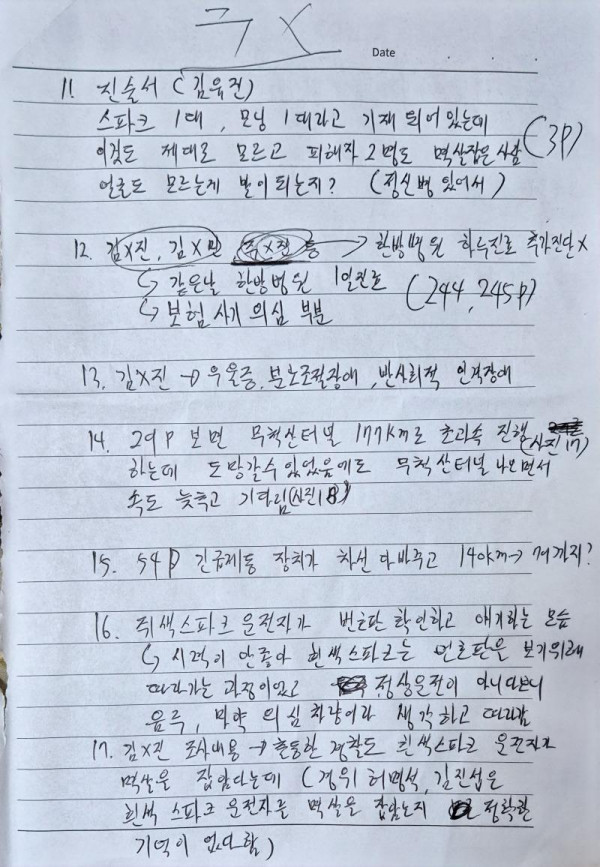 주X
Date
11. 진술서 (김유진)
스파크 1대, 모닝 1대라고 기재 되어있는데
이것도 제대로 모르고 피해자 2명도 멱살잡은 사람 (3P)
얼굴도 모르는게 말이 되는지? (정신병 있어서)
12. 김X진, 김X민 주X진 등 → 한방병원 하루진료 추가진단X
↳ 같은날 한방병원 1일진료 (244, 245P)
↳ 보험사기 의심 부분
13. 김X진 → 우울증, 분노조절장애, 반사회적 인격장애
14. 29P 보면 무척산터널 177km로 초과속 진행 (사진17)
하는데 도망갈수 있었음에도 무척산터널 나오면서
속도 늦추고 기다림 (사진18)
15. 54P 긴급제동 장치가 차선 다바꾸고 140km→ 까지?
16. 쥐색스파크 운전자가 번호판 확인하고 얘기하는 모습
↳ 시력이 안좋아 흰색스파크는 번호판을 보기위해
따라가는 과정이었고 정상운전이 아니다보니
음주, 마약 의심차량이라 생각하고 따라감
17. 김X진 조사내용 → 출동한 경찰도 흰색스파크 운전자가
멱살을 잡았다는데 (경위 허명석, 김진섭은
흰색 스파크 운전자를 멱살을 잡았는지 정확한
기억이 없다함)